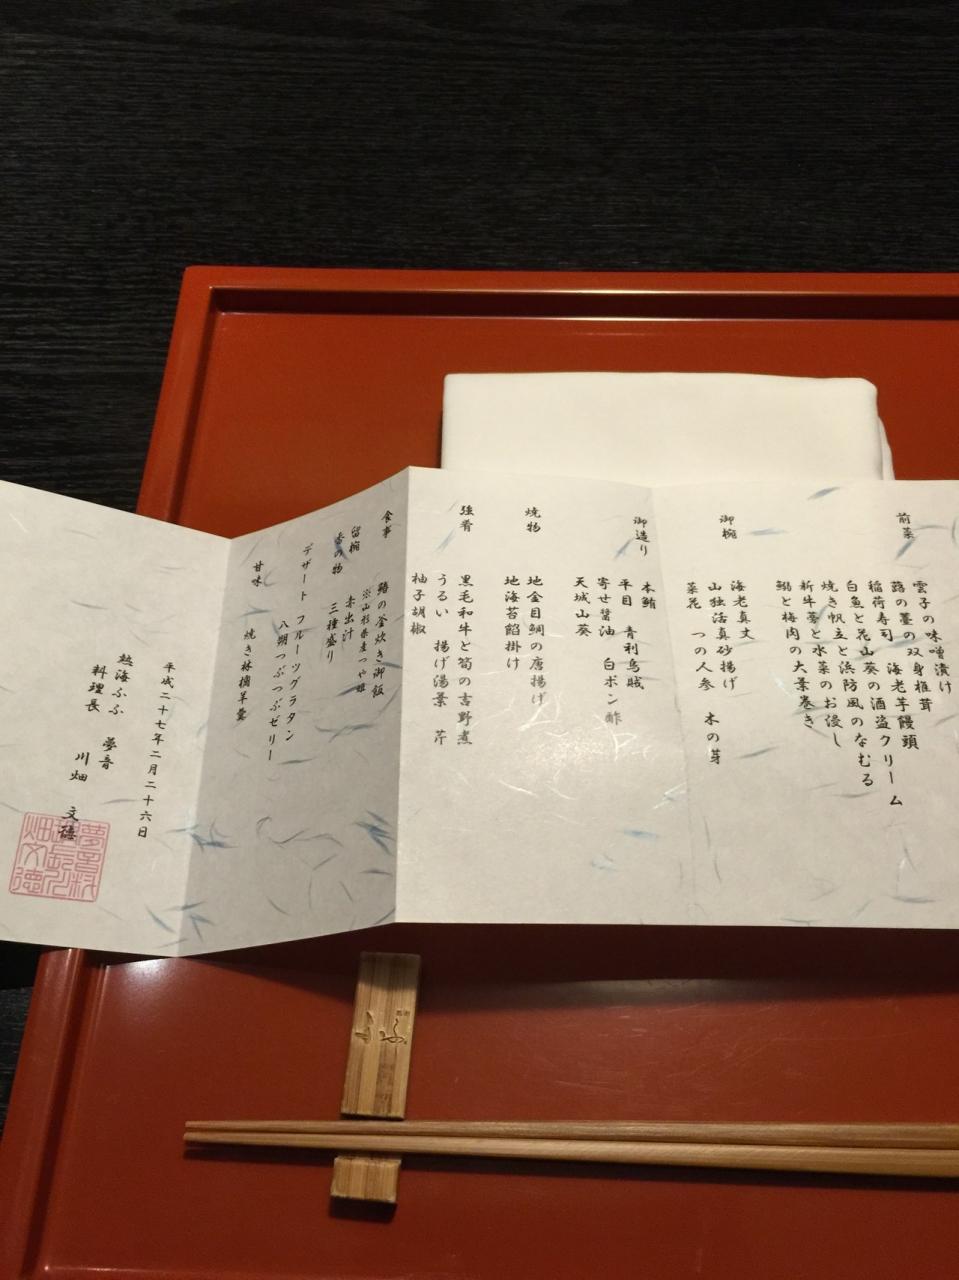 前菜
雲子の味噌漬け
蕗の薹の双身椎茸
稲荷寿司 海老芋饅頭
白魚と花山葵の酒盗クリーム
焼き帆立と浜防風のなむる
新牛蒡と水菜のお浸し
鰯と梅肉の大葉巻き
御椀
海老真丈
山独活真砂揚げ
菜花 つの人参 木の芽
御造り
本鮪
平目 青利烏賊
寄せ醤油 白ポン酢
天城山葵
焼物
地金目鯛の唐揚げ
地海苔餡掛け
強肴
黒毛和牛と筍の吉野煮
うるい 揚げ湯葉 芹
柚子胡椒
食事
鰆の釜炊き御飯
※山形県産つや姫
留椀 赤出汁
香の物 三種盛り
デザート フルーツグラタン
八朔つぶつぶゼリー
甘味 焼き林檎羊羹
平成二十七年二月二十六日
熱海ふふ 夢音
料理長 川畑 文徳
ふふ